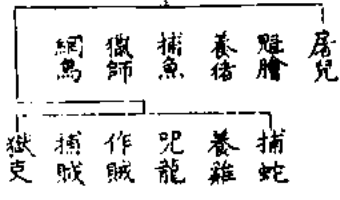 屠兒
魁膾
養猪
捕魚
獵師
網鳥
捕蛇
養雞
咒龍
作賊
捕賊
獄吏